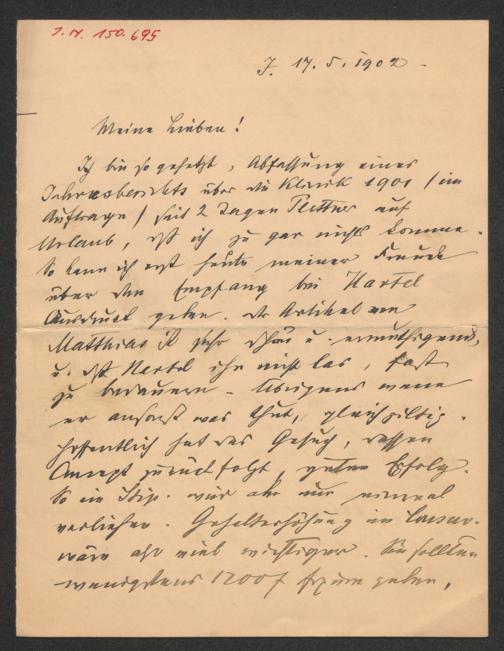 J.N. 150.695
J. 17. 5. 1902.
Meine Lieben!
Ich bin so gehetzt, Abfassung eines
Jahresberichts über die Klinik 1901 / im
Auftrage / seit 2 Tagen Plettner auf
Urlaub, daß ich zu gar nichts komme.
So kann ich erst heute meiner Freude
über den Empfang bei Hartel
Ausdruck geben. Der Artikel von
Matthias ist sehr schön u. ermuthigend,
u. daß Hartel ihn nicht las, fast
zu bedauern. Übrigens wenn
er ansonst was thut, gleichgiltig.
Hoffentlich hat das Gesuch, dessen
Concept zurückfolgt, guten Erfolg.
So ein Stip. wird aber nur einmal
verliehen. Gehaltserhöhung im Conser.
wäre aber viel wichtiger. Sie sollten
wenigstens 1200 f fixum geben,